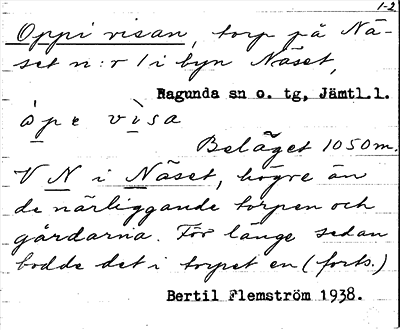 1-2
Oppi visan, torp på Nä-
set n:r 1 i byn Näset,
Ragunda sn o. tg, Jämtl.l.
ȯpe vìsa
Beläget 1050 m.
V N i Näset, högre än
de närliggande torpen och
gårdarna. För länge sedan
bodde det i torpet en (forts.)
Bertil Flemström 1938.